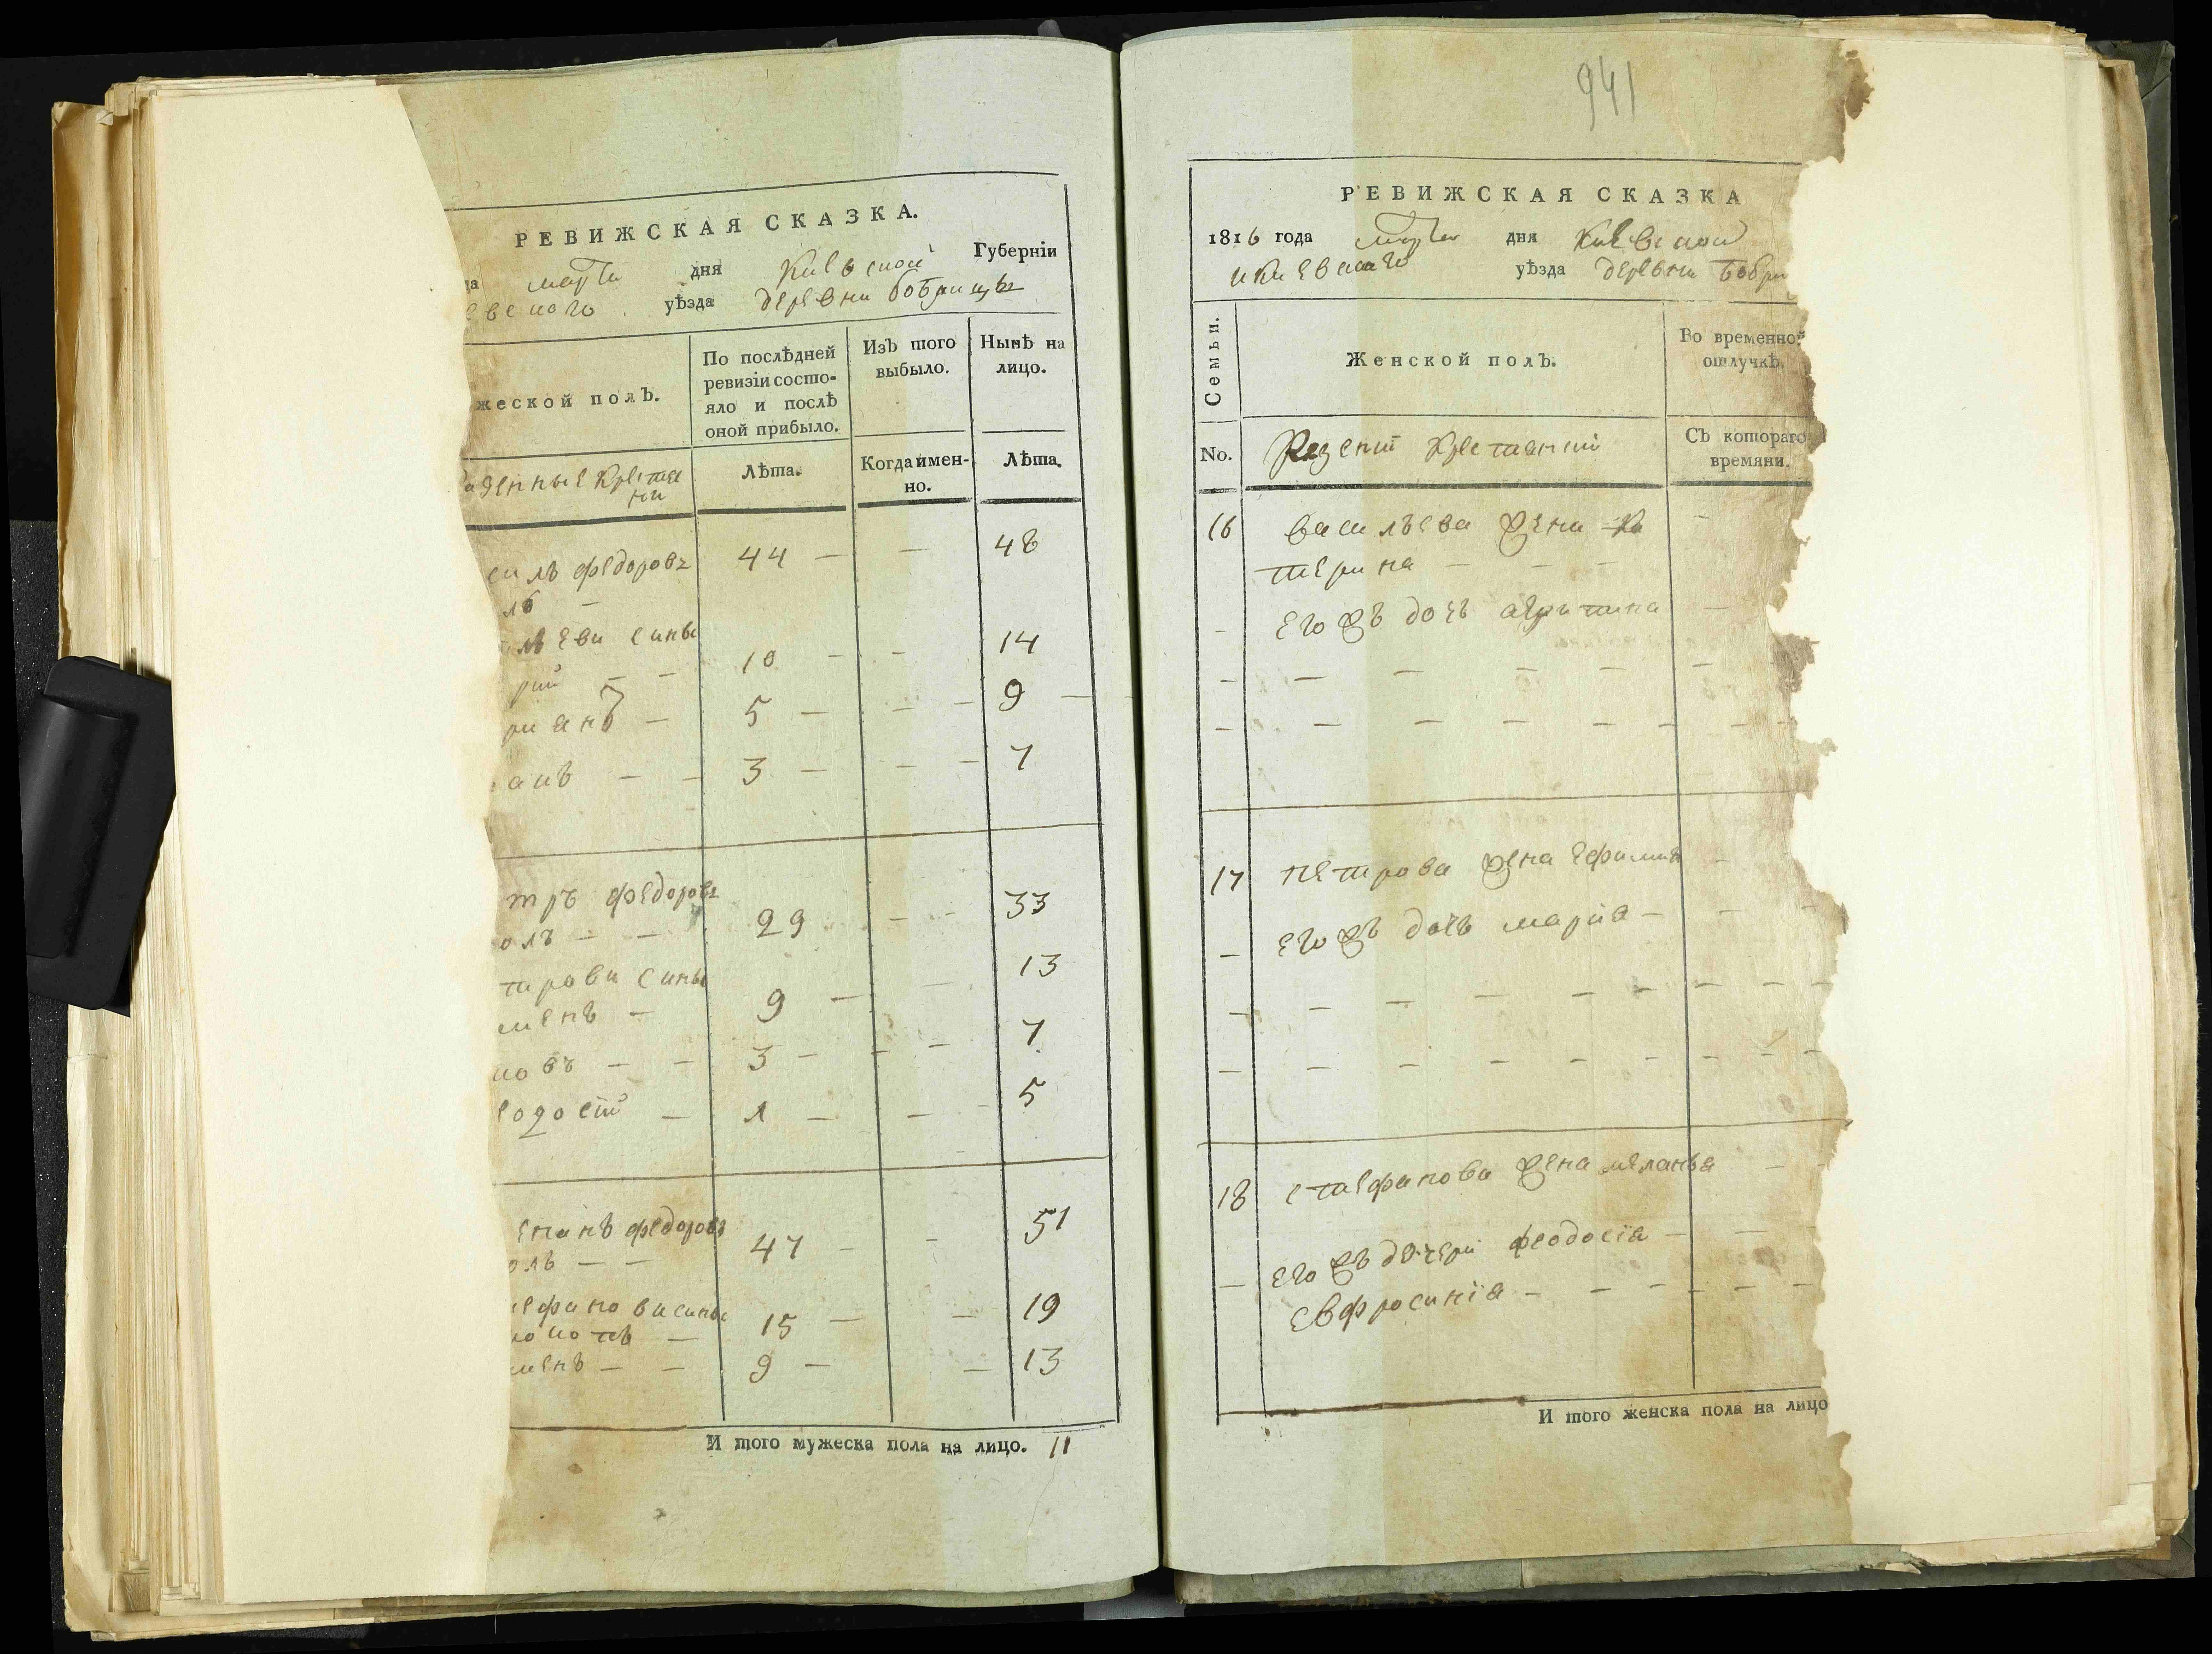 РЕВИЖСКАЯ СКАЗКА.
да марта дня Киевской Губерніи
евского уѣзда деревни бобрицы
жеской полъ.
По послѣдней
ревизіи состо-
яло и послѣ
оной прибыло.
Изъ того
выбыло.
Нынѣ на
лицо.
зенные крестя
ни
Лѣта.
Когда имен-
но.
Лѣта.
силь федоровъ 44 — — 48
ль —
льеви сины
рий — — 10 — — 14
риянъ — 5 — — — 9 —
анъ — — 3 — — — 7
тръ федоровъ
олъ — — 29 — — 33
трови сины 13
менъ — 9 — —
ковъ — — 3 — — — 7
еодосій — 1 — — 5
епанъ федоровъ 51
оль — — 47 — —
ефанови сины 19
кокотъ — 15 — —
менъ — — 9 — — 13
И того мужеска пола на лицо. 11
941
РЕВИЖСКАЯ СКАЗКА
1816 года марта дня Киевской
и киевскаго уѣзда деревни бобри
Семьи.
Женской полъ.
Во временной
отлучкѣ.
No.
Казенніи крестянки
Съ котораго
времяни.
16 васильева жена Ка —
терина — — —
— его жъ дочь —
— — — — — —
— — — — — — — —
17 петрова жена ефимия —
— его жъ дочь марія — — —
— — — — — — — — —
— — — — — — — — —
18 стефанова жена меланья — —
— его жъ дочери феодосія — —
евфросинія — — — — — —
И того женска пола на лицо